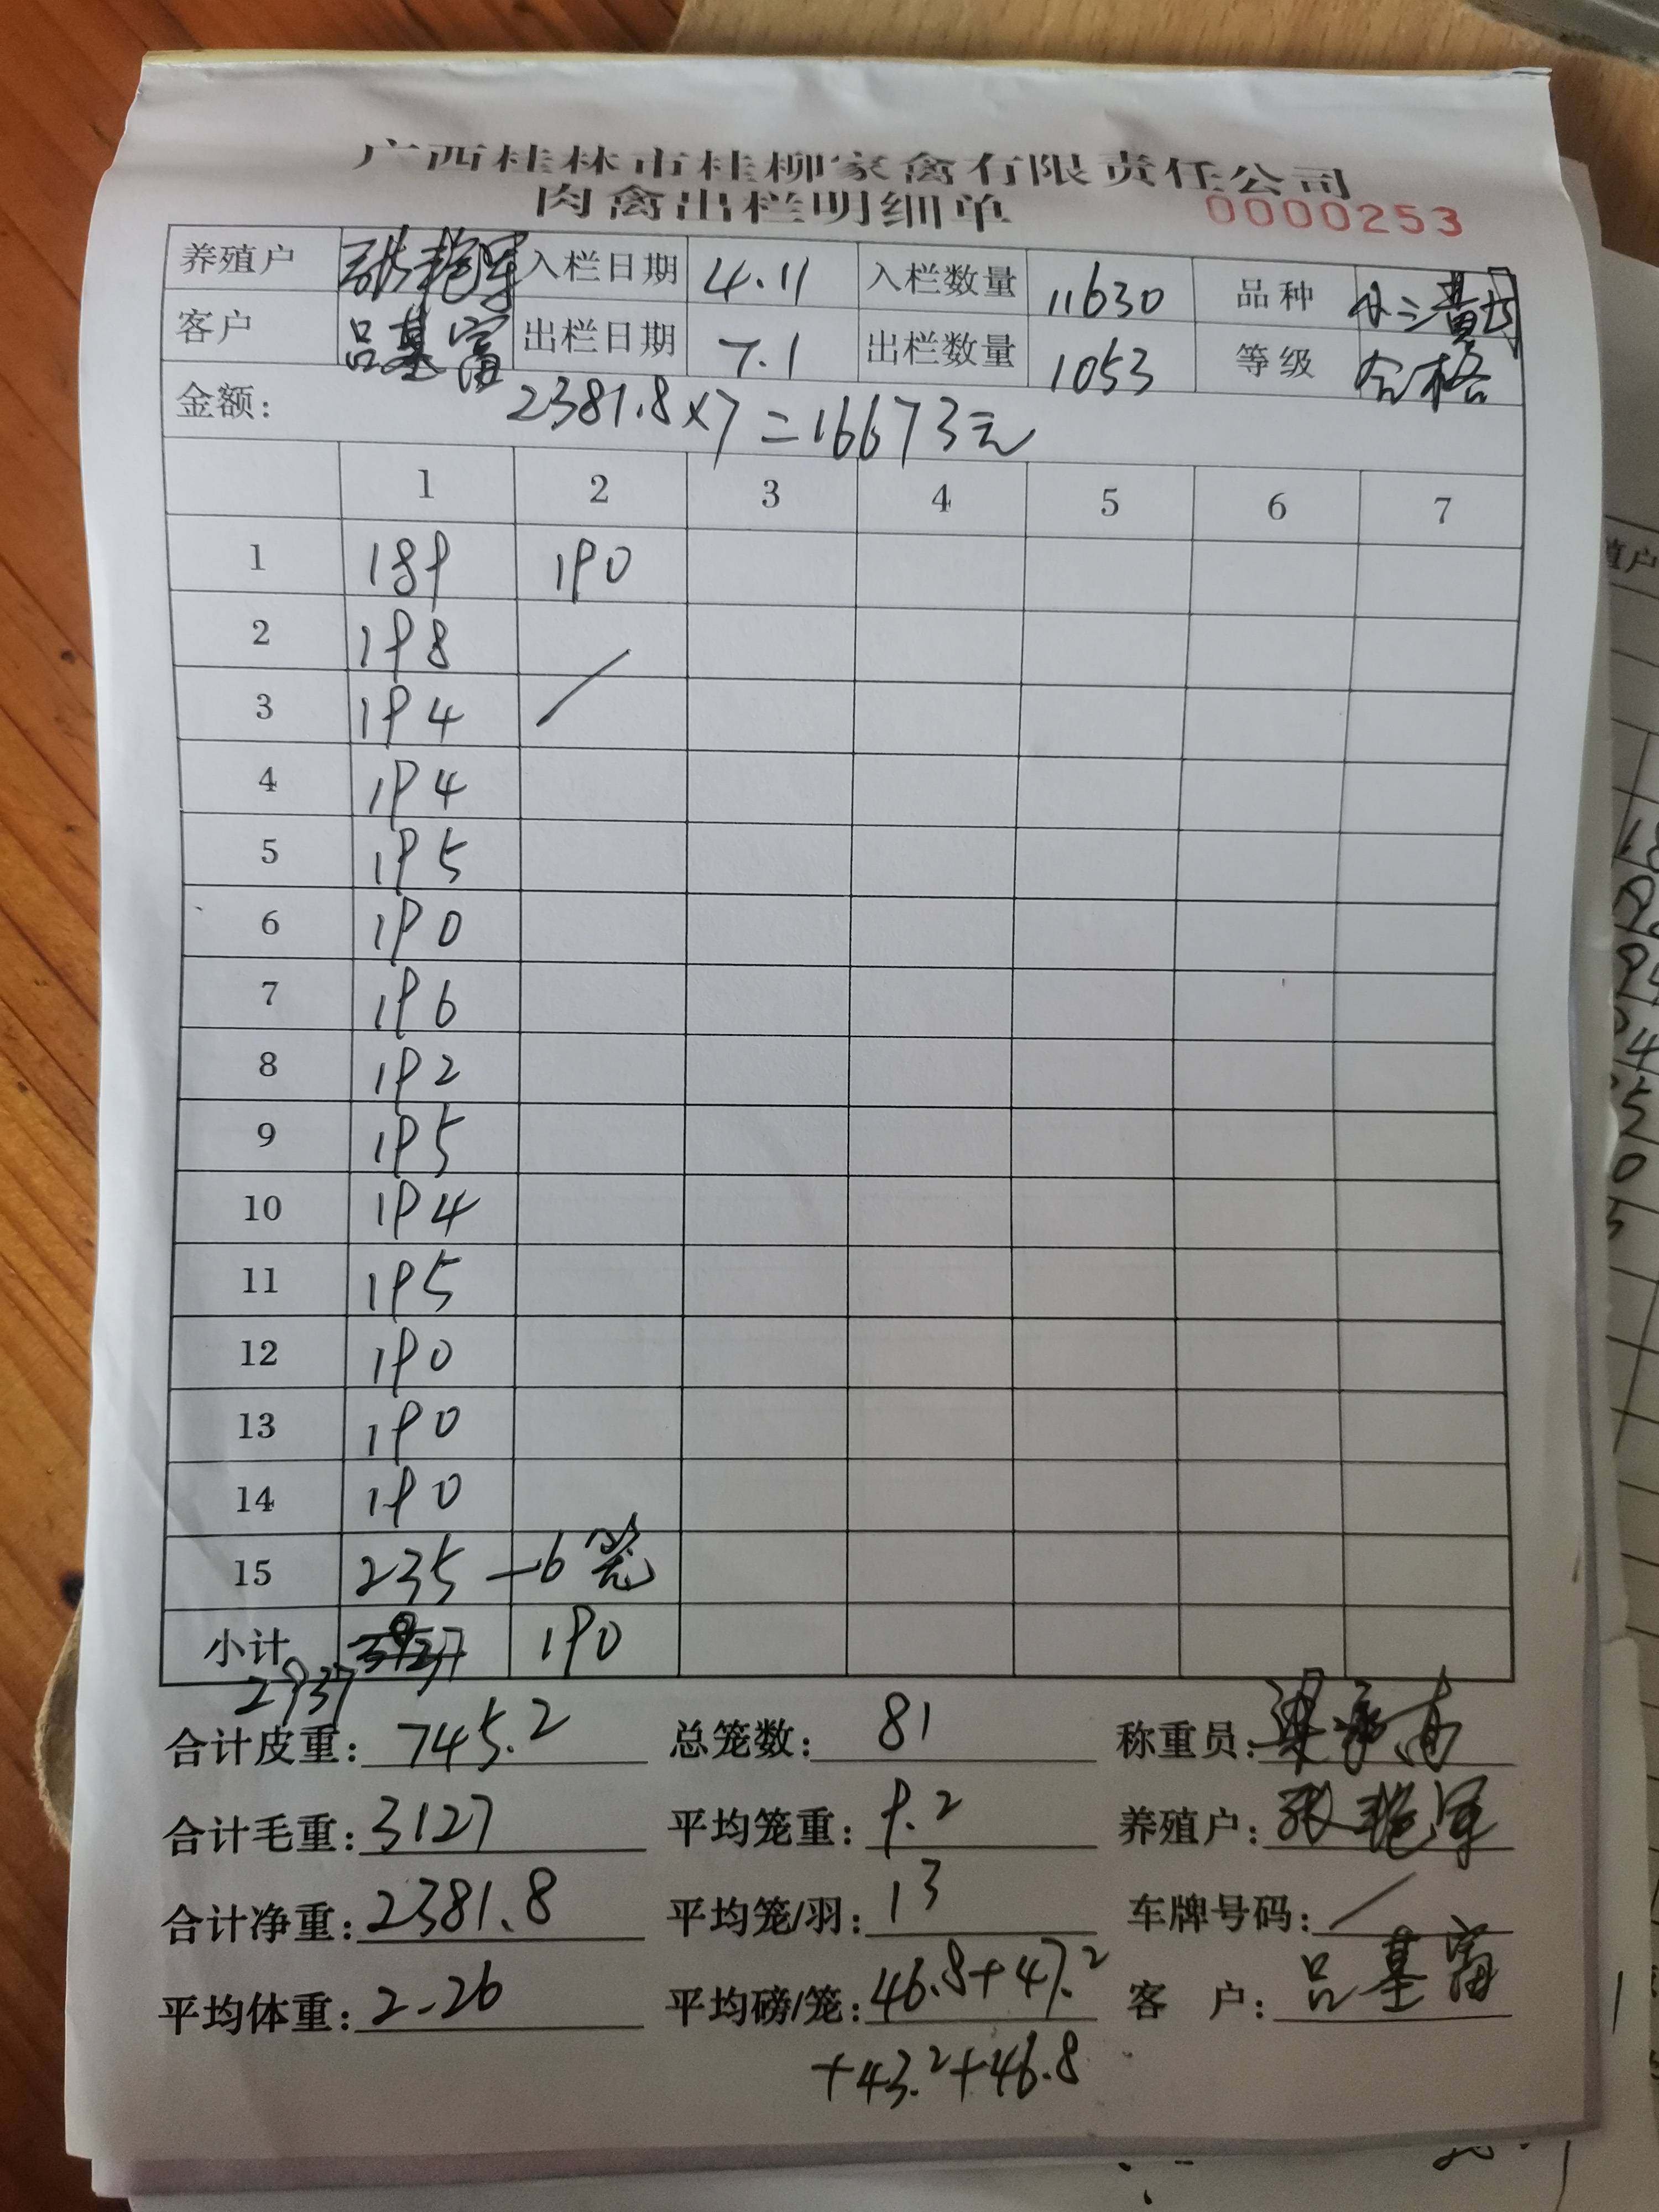 广西桂林市桂柳家禽有限责任公司
肉禽出栏明细单 0000253
养殖户 张艳军 入栏日期 4.11 入栏数量 11630 品种 小三黄母
客户 吕基富 出栏日期 7.1 出栏数量 1053 等级 合格
金额: 2381.8×7=16673元
1 2 3 4 5 6 7
1 189 190
2 198
3 194
4 194
5 195
6 190
7 196
8 192
9 195
10 194
11 195
12 190
13 190
14 190
15 235 — 6笼
小计 2937 190
合计皮重: 745.2 总笼数: 81 称重员:
合计毛重: 3127 平均笼重: 9.2 养殖户: 张艳军
合计净重: 2381.8 平均笼/羽: 13 车牌号码: /
平均体重: 2.26 平均磅/笼: 46.8+47.2 客 户: 吕基富
+43.2+46.8